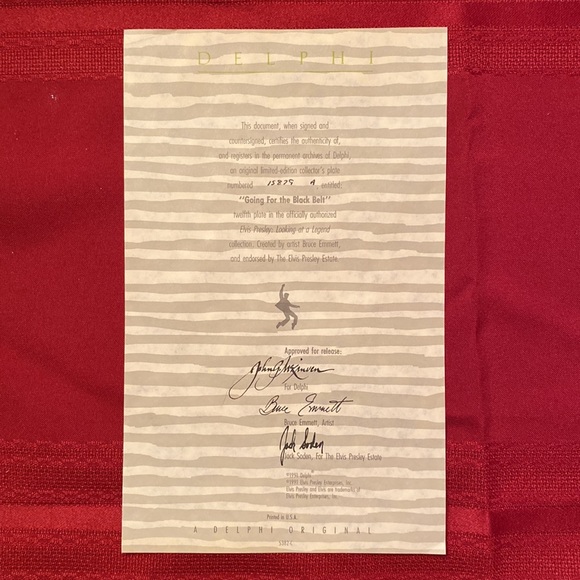 DELPHI
This document, when signed and
countersigned, certifies the authenticity of,
and registers in the permanent archives of Delphi,
an original limited-edition collector's plate
numbered 15879 A entitled:
"Going For the Black Belt"
twelfth plate in the officially authorized
Elvis Presley: Looking at a Legend
collection. Created by artist Bruce Emmett,
and endorsed by The Elvis Presley Estate.
Approved for release:
For Delphi
Bruce Emmett
Bruce Emmett, Artist
Jack Soden
Jack Soden, For The Elvis Presley Estate
Delphi
Elvis Presley Enterprises, Inc.
Elvis Presley and Elvis are trademarks of
Elvis Presley Enterprises, Inc.
Printed in U.S.A.
A DELPHI ORIGINAL